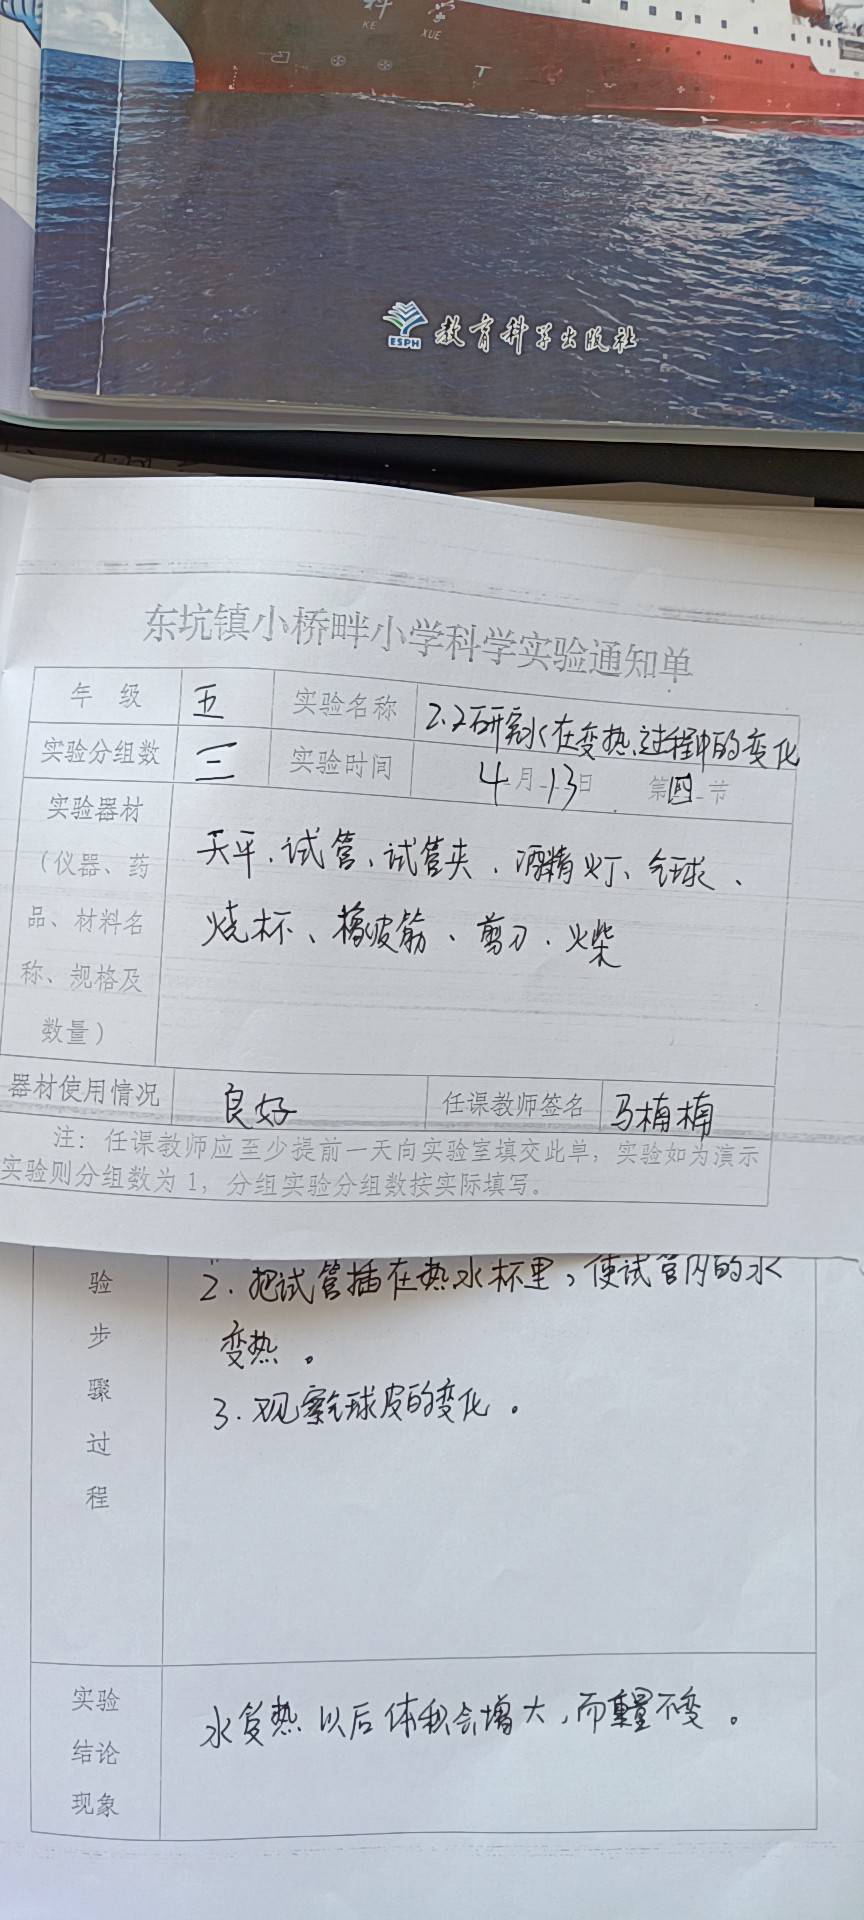 科 学
KE XUE
ESPH 教育科学出版社
东坑镇小桥畔小学科学实验通知单
年 级 五 实验名称 2.2研究水在变热过程中的变化
实验分组数 三 实验时间 4月13日 第四节
实验器材
(仪器、药
品、材料名
称、规格及
数量)
天平、试管、试管夹、酒精灯、气球、
烧杯、橡皮筋、剪刀、火柴
器材使用情况 良好 任课教师签名 马楠楠
注：任课教师应至少提前一天向实验室填交此单，实验如为演示
实验则分组数为1，分组实验分组数按实际填写。
验
步
骤
过
程
2.把试管插在热水杯里，使试管内的水
变热。
3.观察气球皮的变化。
实验
结论
现象
水变热以后体积会增大，而重量不变。